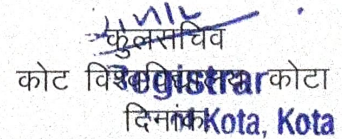 कुलसचिव
कोट विश्वविद्यालय कोटा
Registrar
दिनांक
Kota, Kota